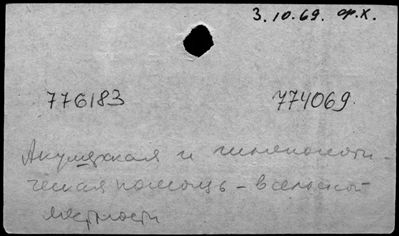 3.10.69. ор.х.
776183 774069
Акушерская и гинекологи-
ческая помощь - в сельской
местности